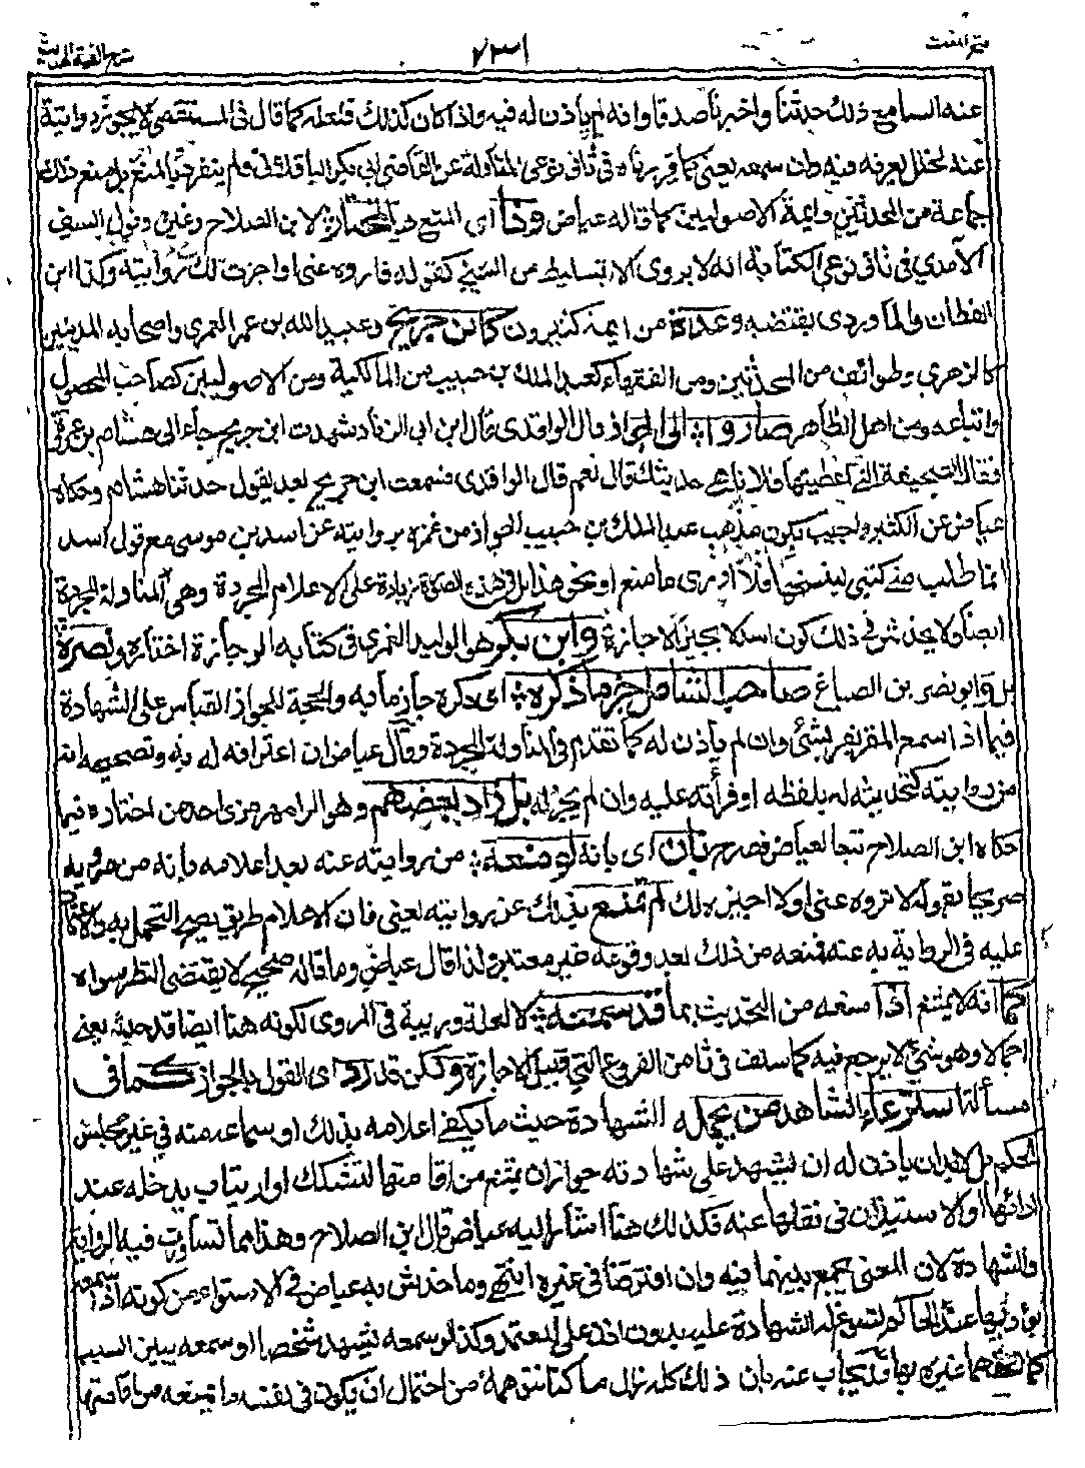 فتح المغيث ٢٣١ شرح الفية الحديث
عنه السامع ذلك حدثنا واخبرنا صدقا وانه لم ياذن له فيه واذا كان كذلك فلعله كما قال فى المستصفى لا يجوز روايته
عنه لخلل يعرفه فيه وان سمعه يعنى كما قررناه فى ثانى نوعى المناولة عن القاضى ابى بكر الباقلانى فلم ينفرد بالمنع بل منع ذلك
جماعة من المحدثين وائمة الاصوليين كما قاله عياض وذا اى المنع هو المختار لابن الصلاح وغيره وقول السيف
الآمدى فى ثانى نوعى الكتابة انه لا يروى الا بتسليط من الشيخ كقوله فاروه عنى او اجزت لك روايته وكذا ابن
القطان والماوردى يقتضيه وعدة من ائمة كثيرون كابن جريج وعبيد الله بن عمر العمرى واصحابه المدنيين
كالزهرى وطوائف من المحدثين ومن الفقهاء كعبد الملك بن حبيب من المالكية ومن الاصوليين كصاحب المحصول
واتباعه ومن اهل الظاهر صاروا الى الجواز قال الواقدى قال ابن ابى الزناد شهدت ابن جريج جاء الى هشام بن عروة
فقال الصحيفة التى اعطيتها فلانا هى حديثك قال نعم قال الواقدى فسمعت ابن جريج بعد يقول حدثنا هشام وحكاه
عياض عن الكثير واحب يكون مذهب عبد الملك بن حبيب الجواز من غمزه بروايته عن اسد بن موسى مع قول اسد
انما طلب منى كتبى لينسخها فلا ادرى ما صنع او نحو هذا بل فى هذه الصورة زيادة على الاعلام المجردة وهى المناولة المجردة
ايضا ولا يخدش فى ذلك كون اسد لا يجيز الاجازة وابن بكر هو الوليد الغمرى فى كتابه الوجازة اختاره ونصره
بل وابو نصر بن الصباغ صاحب الشامل جزما ذكره اى ذكره جازما به والحجة للجواز القياس على الشهادة
فيما اذا سمع المقر يقر بشئ وان لم ياذن له كما تقدم فى المناولة المجردة وقال عياض ان اعترافه له به وتصحيحه انه
من روايته كتحديثه له بلفظه او قرأته عليه وان لم يجزه له بل زاد بعضهم وهو الرامهرمزى احد من اختاره فيما
حكاه ابن الصلاح تبعا لعياض فصرح بان اى بانه لو منعه من روايته عنه بعد اعلامه بانه من مرويه
صريحا بقوله لا تروه عنى او لا اجيزه لك لم يمتنع بذلك عن روايته يعنى فان الاعلام طريق يصح التحمل به والاعتماد
عليه فى الرواية به عنه فمنعه من ذلك بعد وقوعه غير معتبر ولذا قال عياض وما قاله صحيح لا يقتضى النظر سواه
كما انه لا يمتنع اذا منعه من التحديث بما قد سمعه لا لعلة وريبة فى المروى لكونه هنا ايضا قد حدثه يعنى
اجمالا وهو شئ لا يرجع فيه كما سلف فى ثامن الفروع التى قبيل الاجازة ولكن قد رد اى القول بالجواز كما فى
مسألة استرعاء الشاهد من يحمله الشهادة حيث ما يكفى اعلامه بذلك او سماعه منه فى غير مجلس
الحكم بل لابد ان ياذن له ان يشهد على شهادته لجواز ان يمتنع من اقامتها لتشكك او ارتياب يدخله عند
ادائها او الاستيذان فى نقلها عنه فكذلك هنا اشار اليه عياض قال ابن الصلاح وهذا مما تساوت فيه الرواية
والشهادة لان المعنى يجمع بينهما فيه وان افترقتا فى غيره انتهى وما خدش به عياض فى الاستواء من كونه اذا سمعه
يؤديها عند الحاكم تسوغ له الشهادة عليه بدون اذن على المعتمد وكذا لو سمعه يشهد شخصا او سمعه يبين السبب
بها قد يجاب عنه بان ذلك كله نزل ما كنا نتوهمه من احتمال ان يكون فى نفسه ما يمنعه من اقامتها